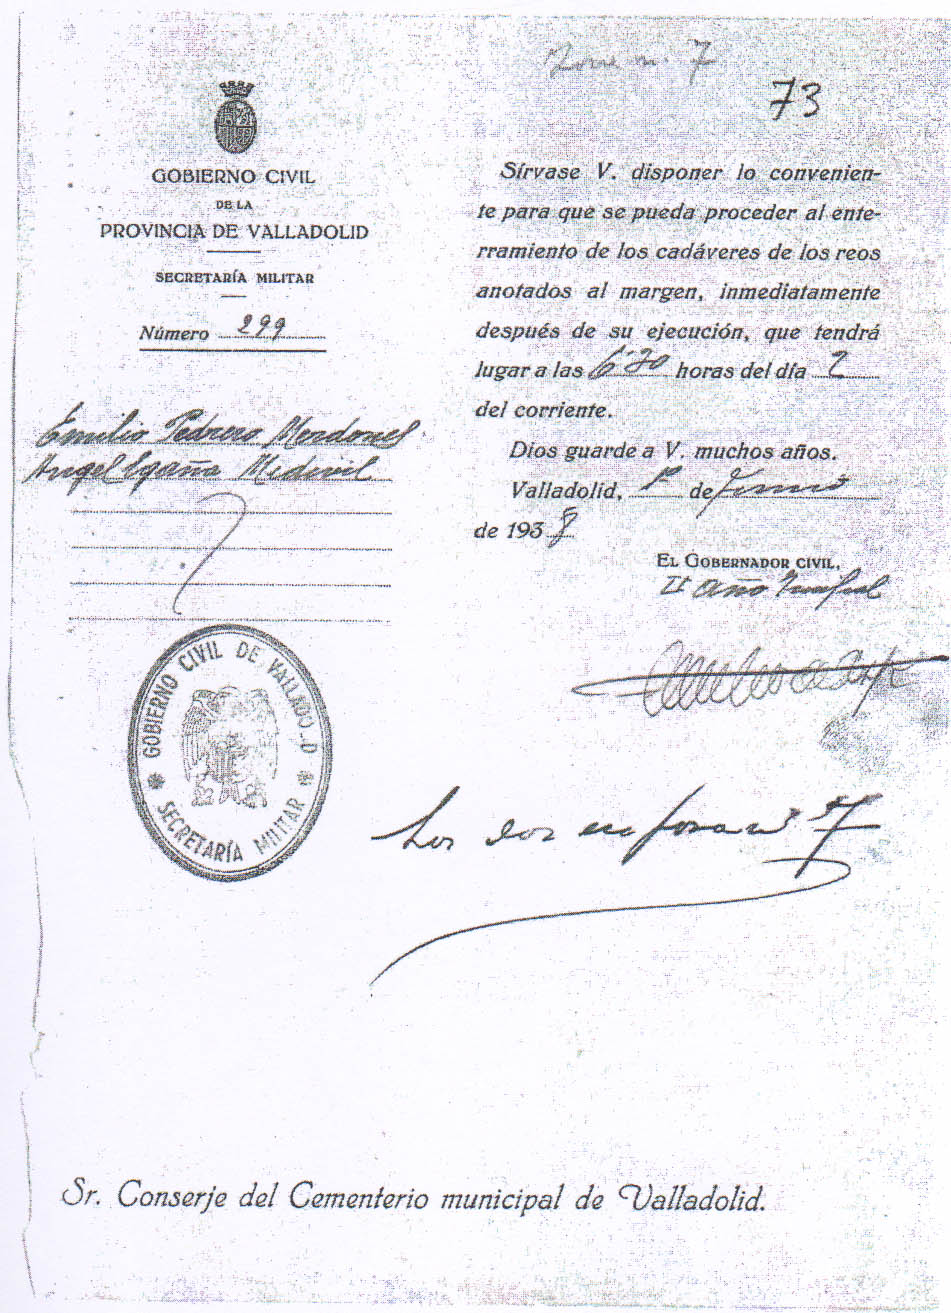 nº 7
73
GOBIERNO CIVIL
DE LA
PROVINCIA DE VALLADOLID
SECRETARÍA MILITAR
Número 299
Emilio Pedrero Mardones
Angel Egaña Medivil
Sírvase V. disponer lo convenien-
te para que se pueda proceder al ente-
rramiento de los cadáveres de los reos
anotados al margen, inmediatamente
después de su ejecución, que tendrá
lugar a las 6'30 horas del día 2
del corriente.
Dios guarde a V. muchos años.
Valladolid, 1º de
de 1938
EL GOBERNADOR CIVIL,
II Año Triunfal
GOBIERNO CIVIL DE VALLADOLID
SECRETARÍA MILITAR
Los dos en fosa nº 7
Sr. Conserje del Cementerio municipal de Valladolid.